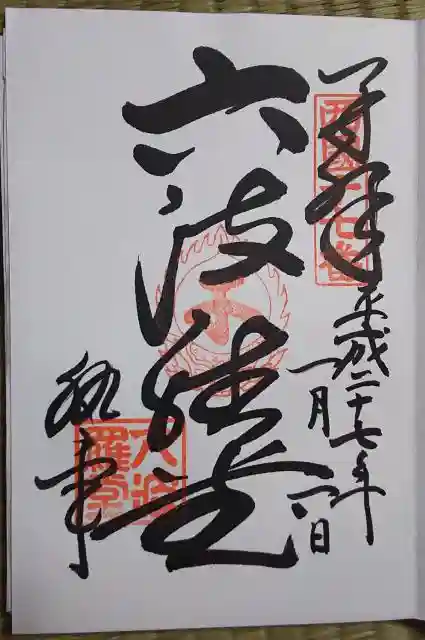 奉拝
西國十七番
平成二十七年
一月六日
六波羅堂
執事
六波羅堂